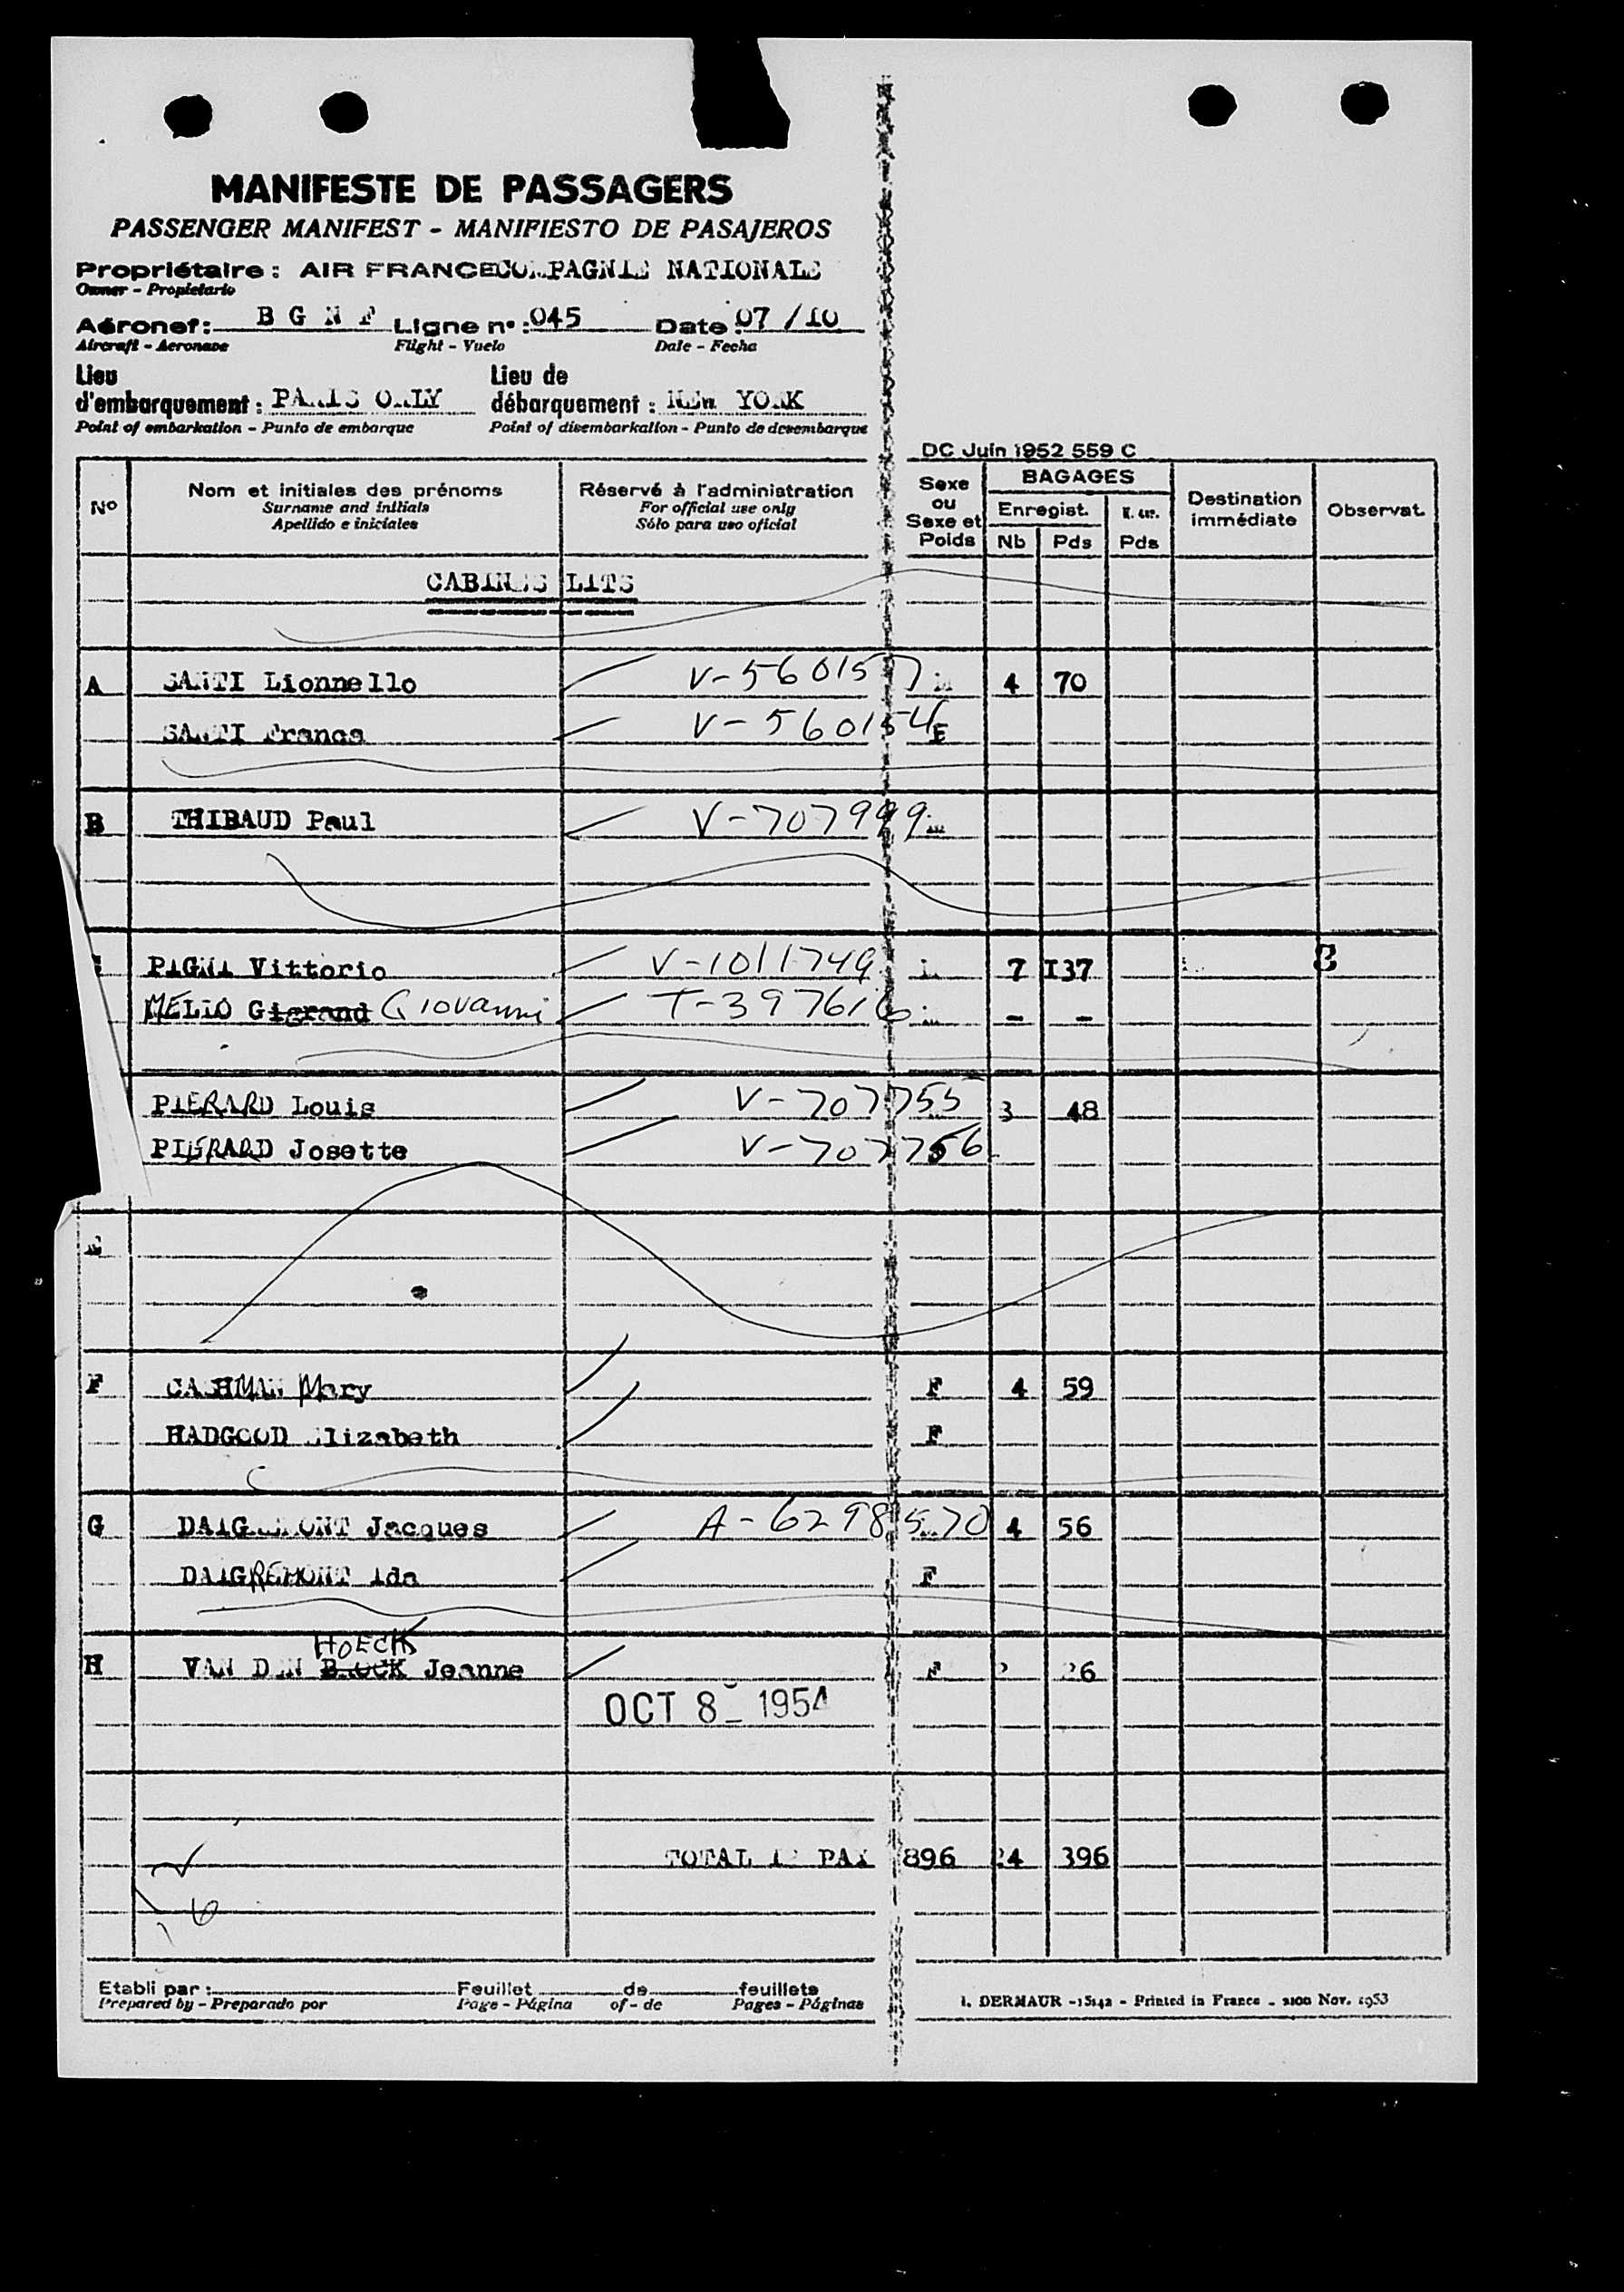 MANIFESTE DE PASSAGERS
PASSENGER MANIFEST - MANIFIESTO DE PASAJEROS
Propriétaire : AIR FRANCE COMPAGNIE NATIONALE
Owner - Propietario
Aéronef : B G N F Ligne n° : 045 Date : 07 /10
Aircraft - Aeronave Flight - Vuelo Date - Fecha
Lieu d'embarquement : PARIS ORLY Lieu de débarquement : NEW YORK
Point of embarkation - Punto de embarque Point of disembarkation - Punto de desembarque
DC Juin 1952 559 C
No
Nom et initiales des prénoms
Surname and initials
Apellido e iniciales
Réservé à l'administration
For official use only
Sólo para uso oficial
Sexe ou Sexe et Poids
BAGAGES
Enregist.
Nb Pds Pds
Destination immédiate
Observat.
CABINES LITS
A SANTI Lionnello V-560157 M 4 70
SANTI Franca V-560154 F
B THIBAUD Paul V-707999
PAGNI Vittorio V-1011749 7 I37
MELIO Gigrand Giovanni T-397616 - -
PIERARD Louis V-707755 3 48
PIERARD Josette V-707756
E
F CASHMAN Mary F 4 59
HADGOOD Elizabeth F
G DAIGREMONT Jacques A-6298570 4 56
DAIGREMONT Ida F
HOECK
H VAN DEN BROCK Jeanne F 2 26
OCT 8 - 1954
TOTAL 12 PAX 896 24 396
6
Etabli par : Feuillet de feuillets
Prepared by - Preparado por Page - Página of - de Pages - Páginas
I. DERMAUR - 15142 - Printed in France - 2100 Nov. 1953